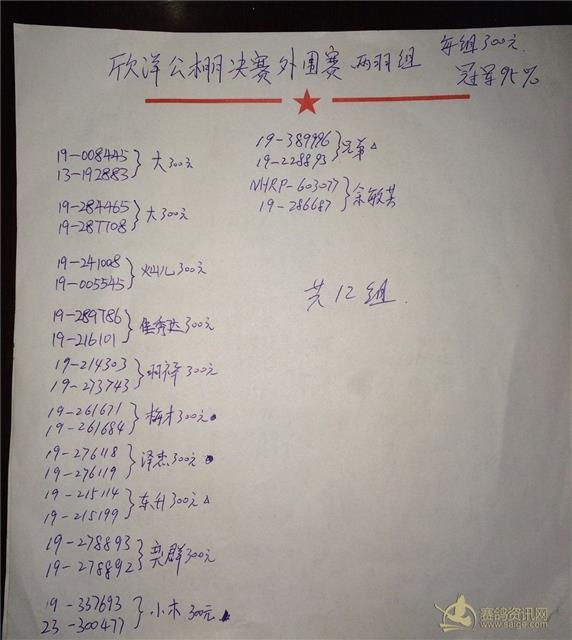 欣洋公棚决赛外围赛 两羽组 每组300元
冠军95%
19-008445
13-192883 } 大300元
19-284465
19-287708 } 大300元
19-241008
19-005545 } 灿儿300元
19-289786
19-216101 } 隹秀英300元
19-214303
19-273743 } 羽祥300元
19-261671
19-261684 } 梅木300元
19-276118
19-276119 } 泽杰300元
19-215114
19-215199 } 东升300元△
19-278893
19-278892 } 奕群300元
19-337693
23-300477 } 小木300元
19-389996
19-228893 } 兄弟△
NHRP-603077
19-286687 } 余敏芳
共12组.
赛鸽资讯网
www.saige.com